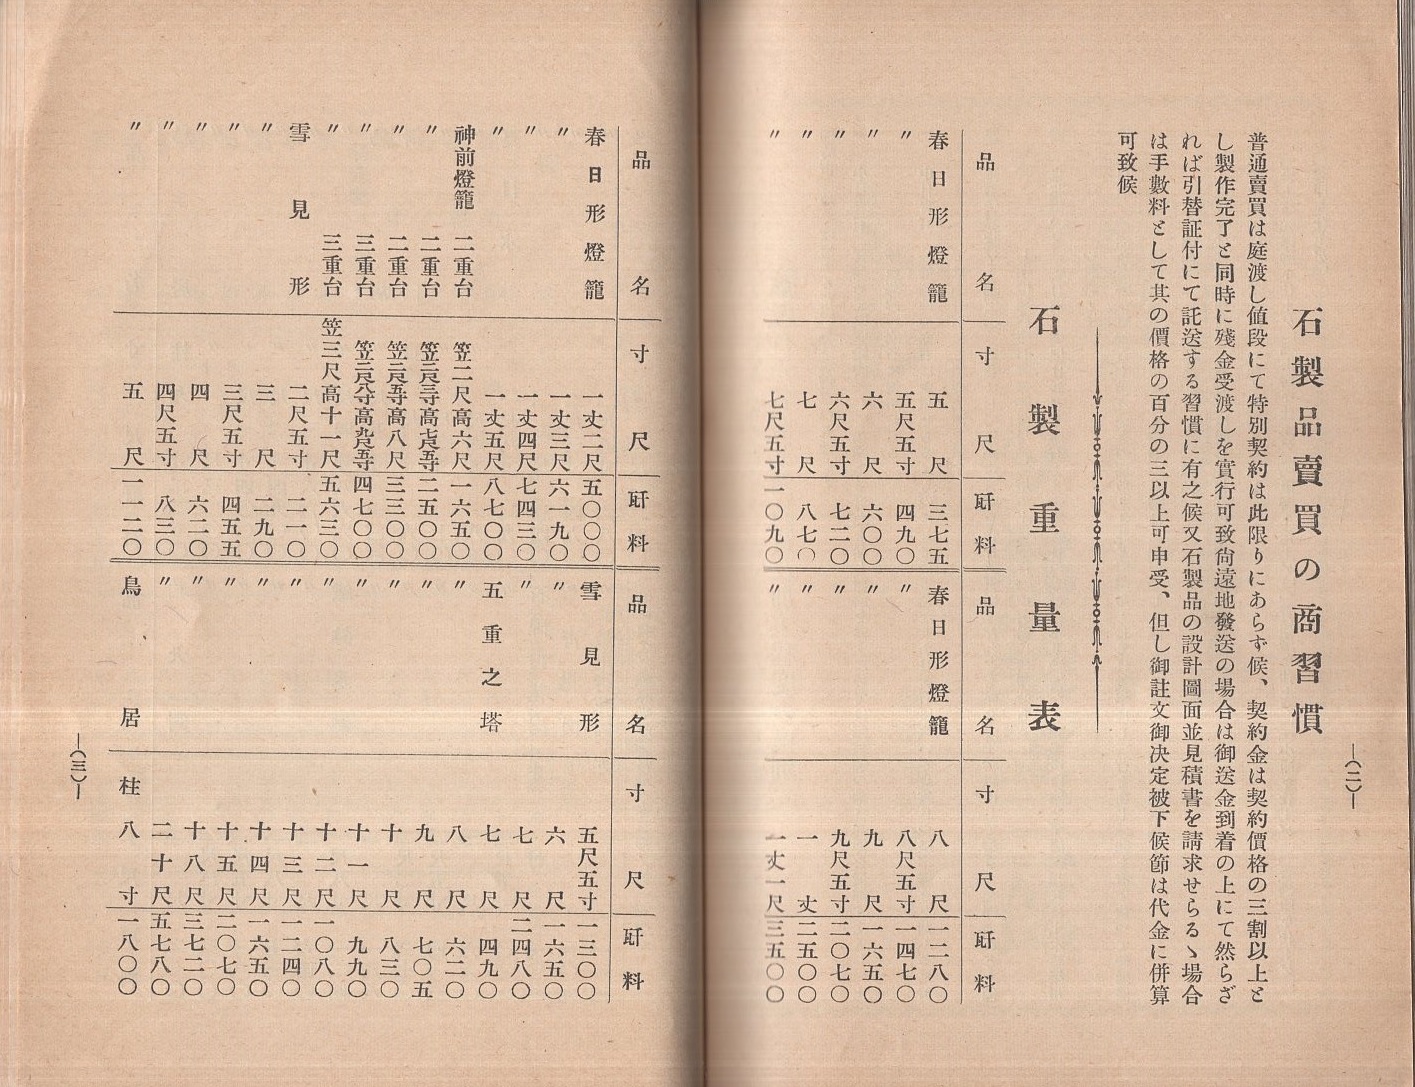 —(二)—
石製品賣買の商習慣
普通賣買は庭渡し値段にて特別契約は此限りにあらず候、契約金は契約價格の三割以上と
し製作完了と同時に殘金受渡しを實行可致尙遠地發送の場合は御送金到着の上にて然らざ
れば引替証付にて託送する習慣に有之候又石製品の設計圖面並見積書を請求せらるゝ場合
は手數料として其の價格の百分の三以上可申受、但し御註文御決定被下候節は代金に併算
可致候
石製重量表
品名 寸尺 瓩料
春日形燈籠 五尺 三七五
〃 五尺五寸 四九〇
〃 六尺 六〇〇
〃 六尺五寸 七二〇
〃 七尺 八七〇
〃 七尺五寸 一〇九〇
品名 寸尺 瓩料
春日形燈籠 八尺 一二八〇
〃 八尺五寸 一四七〇
〃 九尺 一六五〇
〃 九尺五寸 二〇七〇
〃 一丈 二五〇〇
〃 一丈一尺 三五〇〇
品名 寸尺 瓩料
春日形燈籠 一丈二尺 五〇〇〇
〃 一丈三尺 六一九〇
〃 一丈四尺 七四三〇
〃 一丈五尺 八七〇〇
神前燈籠 二重台 笠二尺高六尺 一六五〇
〃 二重台 笠二尺三寸高七尺五寸 二五〇〇
〃 二重台 笠二尺五寸高八尺 三三〇〇
〃 三重台 笠二尺八寸高九尺五寸 四七〇〇
〃 三重台 笠三尺高十一尺 五六三〇
雪見形 二尺五寸 二一〇
〃 三尺 二九〇
〃 三尺五寸 四五五
〃 四尺 六二〇
〃 四尺五寸 八三〇
〃 五尺 一一二〇
品名 寸尺 瓩料
雪見形 五尺五寸 一三〇〇
〃 六尺 一六五〇
〃 七尺 二四八〇
五重之塔 七尺 四九〇
〃 八尺 六二〇
〃 九尺 七〇五
〃 十尺 八三〇
〃 十一尺 九九〇
〃 十二尺 一〇八〇
〃 十三尺 一二四〇
〃 十四尺 一六五〇
〃 十五尺 二〇七〇
〃 十八尺 三七二〇
〃 二十尺 五七八〇
鳥居 柱八寸 一八〇〇
—(三)—